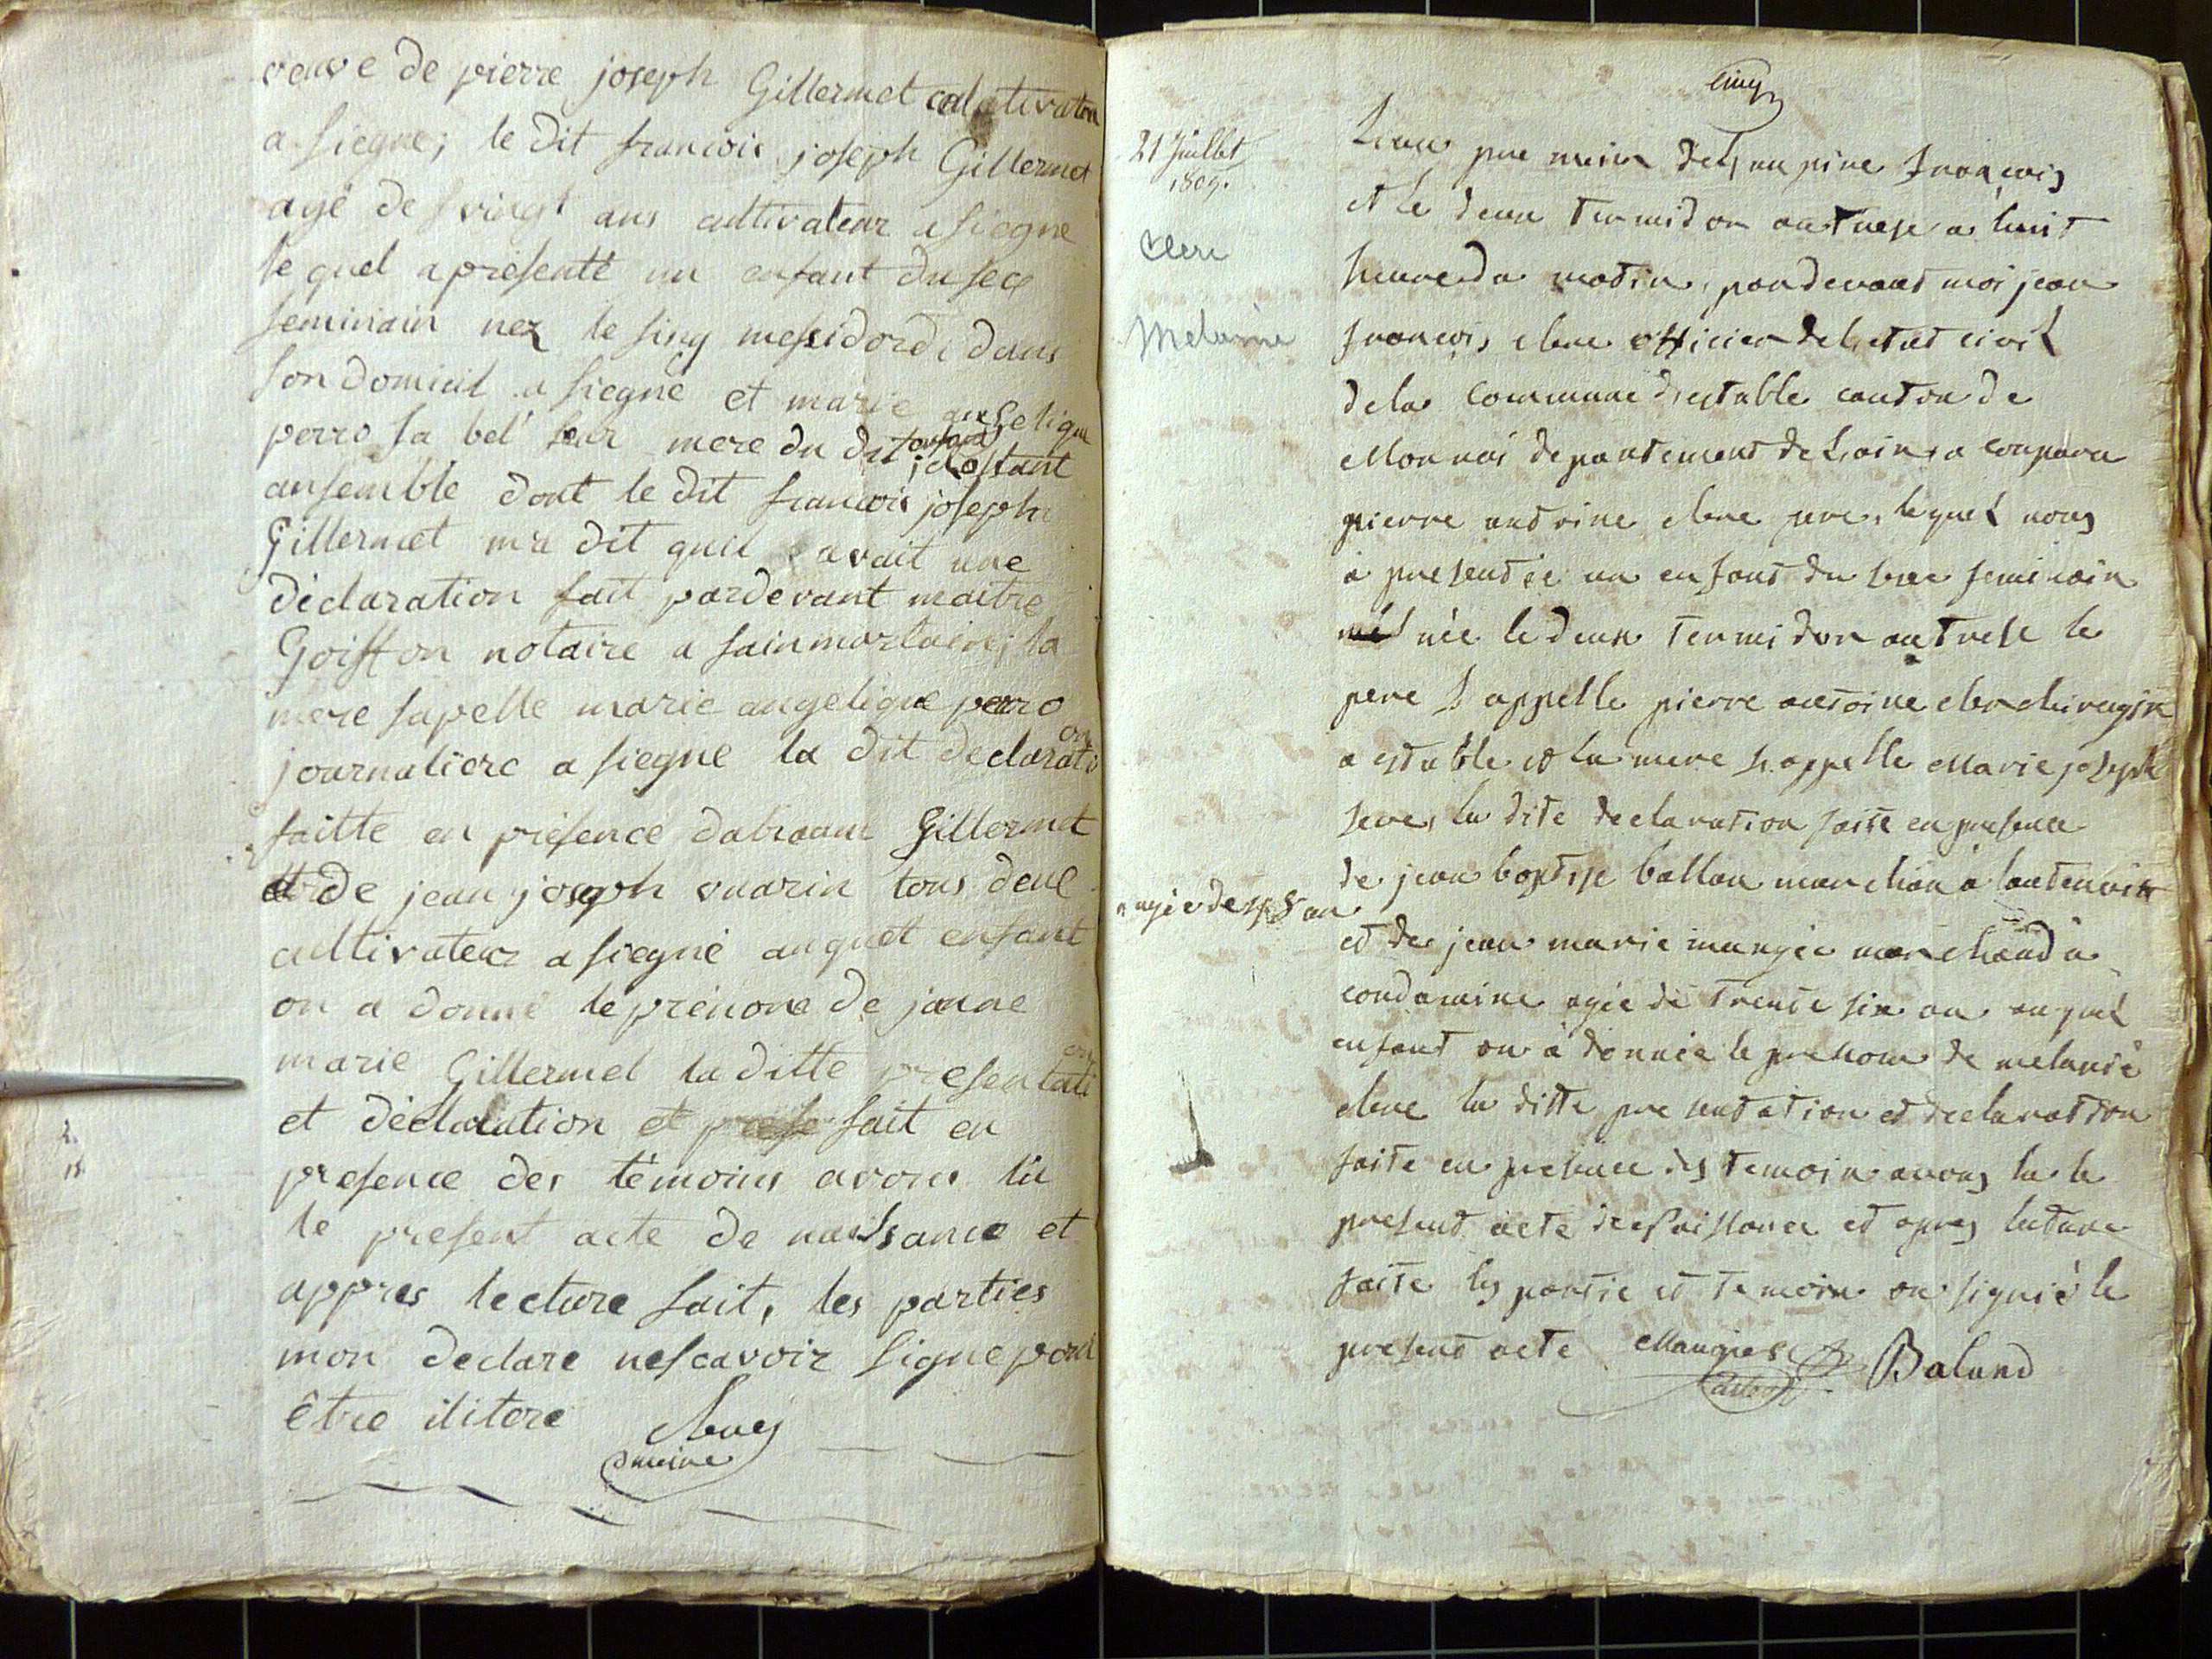 veuve de pierre joseph Gillermet
a siegne; le dit francois joseph Gillermet
agé de vingt ans cultivateur a siegne
le quel a présenté un enfant du sex
feminain nez le sinq messidord dans
son domicil a siegne et marie angelique
perro sa bel' seur mere du dit enfant
ansemble dont le dit francois joseph
Gillermet ma dit quil avait une
déclaration fait pardevant maitre
Goiffon notaire a sainmartain; la
mere sapelle marie angelique perro
journaliere a siegne la dit declaration
faitte en présence dabraam Gillermet
et de jean joseph vuarin tous deux
cultivateur a siegne auquel enfant
on a donné le prénom de janne
marie Gillermet la ditte presentation
et déclaration et fait en
presence des témoins avons lü
le present acte de naissance et
appres lecture fait, les parties
mon declare nescavoir signe pour
être ilitere
maire
cinq
21 Juillet
1805.
Clerc
Melanie
Lan pre mier del, an pire francois
et le deux termidor an trese a huit
heure du matin, pardevant moi jean
francois clerc officier del, etat civil
dela commune d, estable canton de
Monnai departement de L, ain, a comparu
pierre antoine clerc pere, lequel nous
à presentée un enfant du sexe feminain
née le deux termidor an trese le
pere s appelle pierre antoine clerc
a estable et la mere s, appelle Marie joseph
la dite declaration faite en presence
de jean baptise ballan marchan à
agée de 48 an
et de jean marie mangée marchand à
condamine agée de trente six an auquel
enfant on à donnée le prenom de melanié
clerc la ditte presentation et declaration
faite en presence des temoin avons lu le
present acte de naissance et apres lecture
faite les partie et temoin on signié le
present acte Maugies Baland